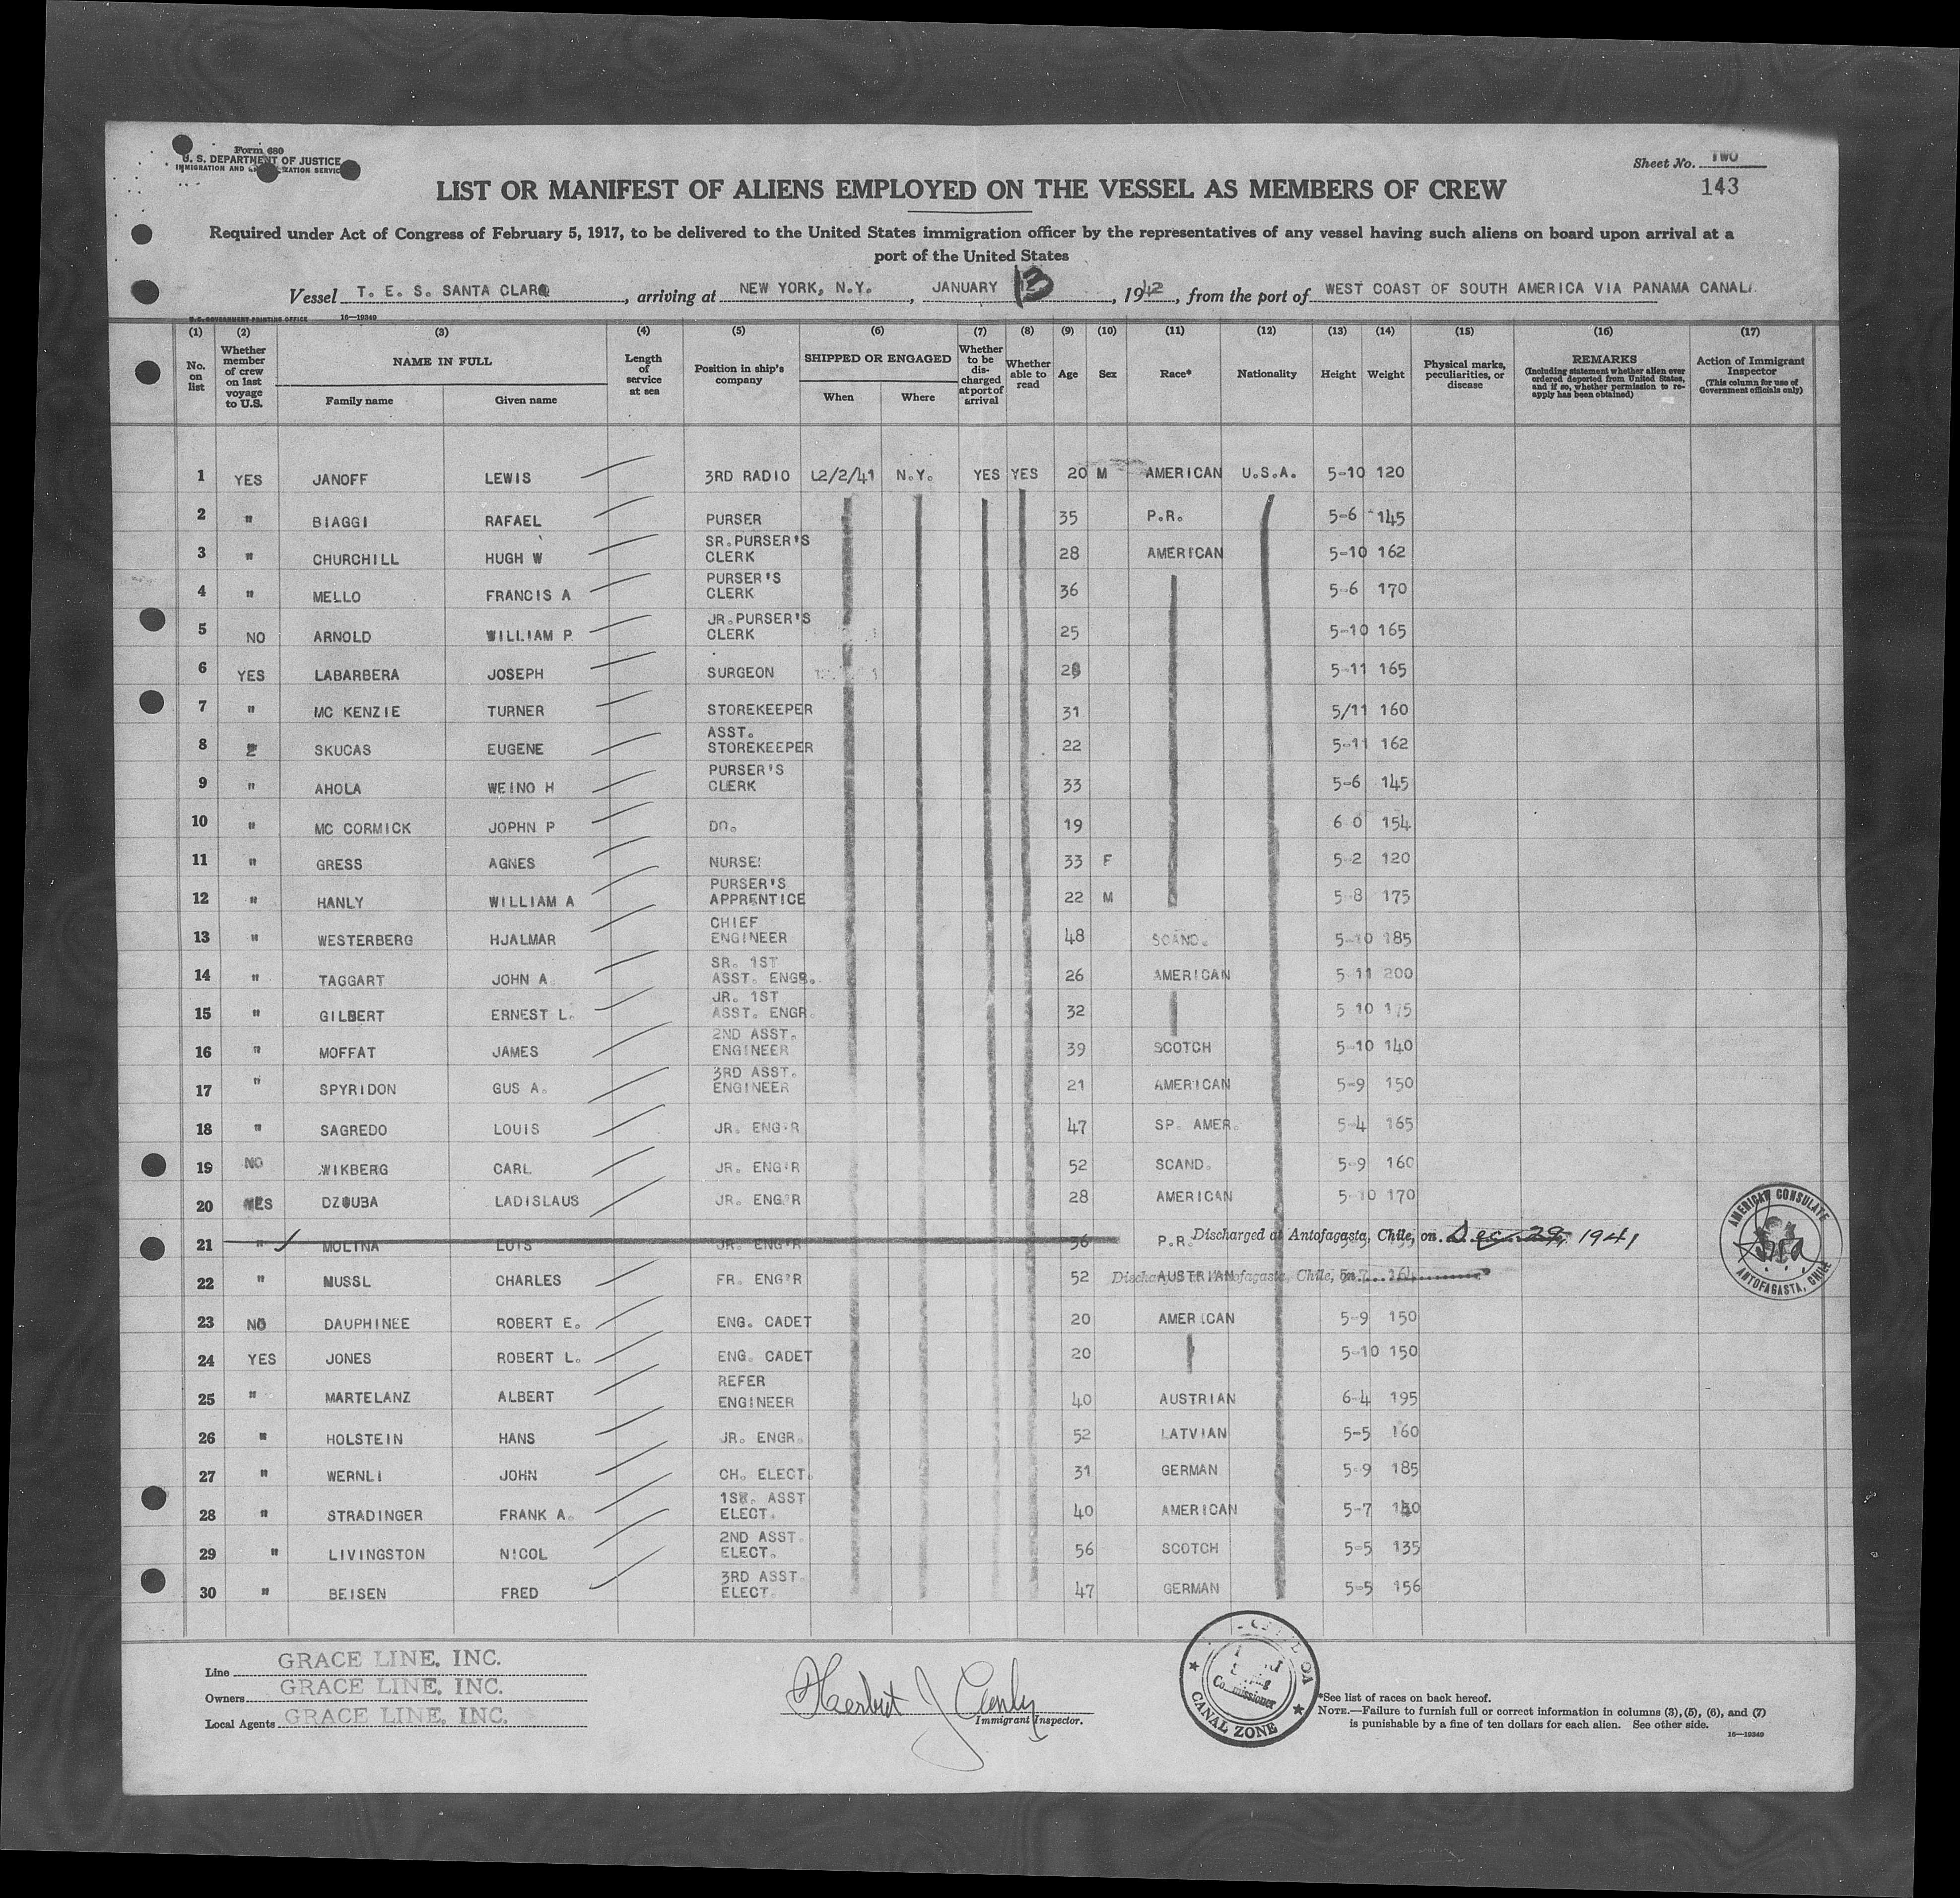 Form 680
U. S. DEPARTMENT OF JUSTICE
IMMIGRATION AND NATURALIZATION SERVICE
Sheet No. TWO
143
LIST OR MANIFEST OF ALIENS EMPLOYED ON THE VESSEL AS MEMBERS OF CREW
Required under Act of Congress of February 5, 1917, to be delivered to the United States immigration officer by the representatives of any vessel having such aliens on board upon arrival at a
port of the United States
Vessel T. E. S. SANTA CLARA, arriving at NEW YORK, N.Y., JANUARY 13, 1942, from the port of WEST COAST OF SOUTH AMERICA VIA PANAMA CANAL.
U.S. GOVERNMENT PRINTING OFFICE 16—19349
(1) No. on list
(2) Whether member of crew on last voyage to U.S.
(3) NAME IN FULL Family name Given name
(4) Length of service at sea
(5) Position in ship's company
(6) SHIPPED OR ENGAGED When Where
(7) Whether to be discharged at port of arrival
(8) Whether able to read
(9) Age
(10) Sex
(11) Race*
(12) Nationality
(13) Height
(14) Weight
(15) Physical marks, peculiarities, or disease
(16) REMARKS (Including statement whether alien ever ordered deported from United States, and if so, whether permission to reapply has been obtained)
(17) Action of Immigrant Inspector (This column for use of Government officials only)
1 YES JANOFF LEWIS 3RD RADIO 12/2/41 N.Y. YES YES 20 M AMERICAN U.S.A. 5-10 120
2 " BIAGGI RAFAEL PURSER 35 P.R. 5-6 145
3 " CHURCHILL HUGH W SR.PURSER'S CLERK 28 AMERICAN 5-10 162
4 " MELLO FRANCIS A PURSER'S CLERK 36 5-6 170
5 NO ARNOLD WILLIAM P. JR.PURSER'S CLERK 25 5-10 165
6 YES LABARBERA JOSEPH SURGEON 28 5-11 165
7 " MC KENZIE TURNER STOREKEEPER 31 5/11 160
8 " SKUCAS EUGENE ASST. STOREKEEPER 22 5-11 162
9 " AHOLA WEINO H PURSER'S CLERK 33 5-6 145
10 " MC CORMICK JOPHN P DO. 19 6 0 154
11 " GRESS AGNES NURSE 33 F 5 2 120
12 " HANLY WILLIAM A PURSER'S APPRENTICE 22 M 5 8 175
13 " WESTERBERG HJALMAR CHIEF ENGINEER 48 SCAND. 5-10 185
14 " TAGGART JOHN A. SR. 1ST ASST. ENGR. 26 AMERICAN 5 11 200
15 " GILBERT ERNEST L. JR. 1ST ASST. ENGR. 32 5 10 175
16 " MOFFAT JAMES 2ND ASST. ENGINEER 39 SCOTCH 5-10 140
17 " SPYRIDON GUS A. 3RD ASST. ENGINEER 21 AMERICAN 5-9 150
18 " SAGREDO LOUIS JR. ENG'R 47 SP. AMER. 5-4 165
19 NO WIKBERG CARL JR. ENG'R 52 SCAND. 5-9 160
20 YES DZOUBA LADISLAUS JR. ENG'R 28 AMERICAN 5-10 170
21 " MOLINA LUIS JR. ENG'R 36 P.R. Discharged at Antofagasta, Chile, on Dec. 29, 1941
22 " MUSSL CHARLES FR. ENG'R 52 AUSTRIAN Discharged at Antofagasta, Chile, on 5-7 164
23 NO DAUPHINEE ROBERT E. ENG. CADET 20 AMERICAN 5-9 150
24 YES JONES ROBERT L. ENG. CADET 20 5-10 150
25 " MARTELANZ ALBERT REFER ENGINEER 40 AUSTRIAN 6-4 195
26 " HOLSTEIN HANS JR. ENGR. 52 LATVIAN 5-5 160
27 " WERNLI JOHN CH. ELECT. 31 GERMAN 5-9 185
28 " STRADINGER FRANK A. 1ST. ASST ELECT. 40 AMERICAN 5-7
29 " LIVINGSTON NICOL 2ND ASST. ELECT. 56 SCOTCH 5-5 135
30 " BEISEN FRED 3RD ASST. ELECT. 47 GERMAN 5-5 156
AMERICAN CONSULATE
ANTOFAGASTA, CHILE
Line GRACE LINE, INC.
Owners GRACE LINE, INC.
Local Agents GRACE LINE, INC.
Herbert J
Immigrant Inspector.
Commissioner
CANAL ZONE
*See list of races on back hereof.
NOTE.—Failure to furnish full or correct information in columns (3), (5), (6), and (7)
is punishable by a fine of ten dollars for each alien. See other side.
16—19349